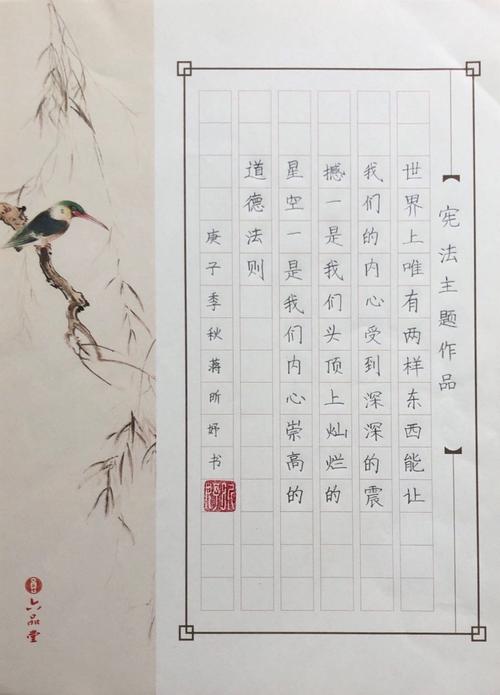 宪法主题作品
世界上唯有两样东西能让
我们的内心受到深深的震
撼一是我们头顶上灿烂的
星空一是我们内心崇高的
道德法则
庚子季秋蒋昕妤书
六品堂